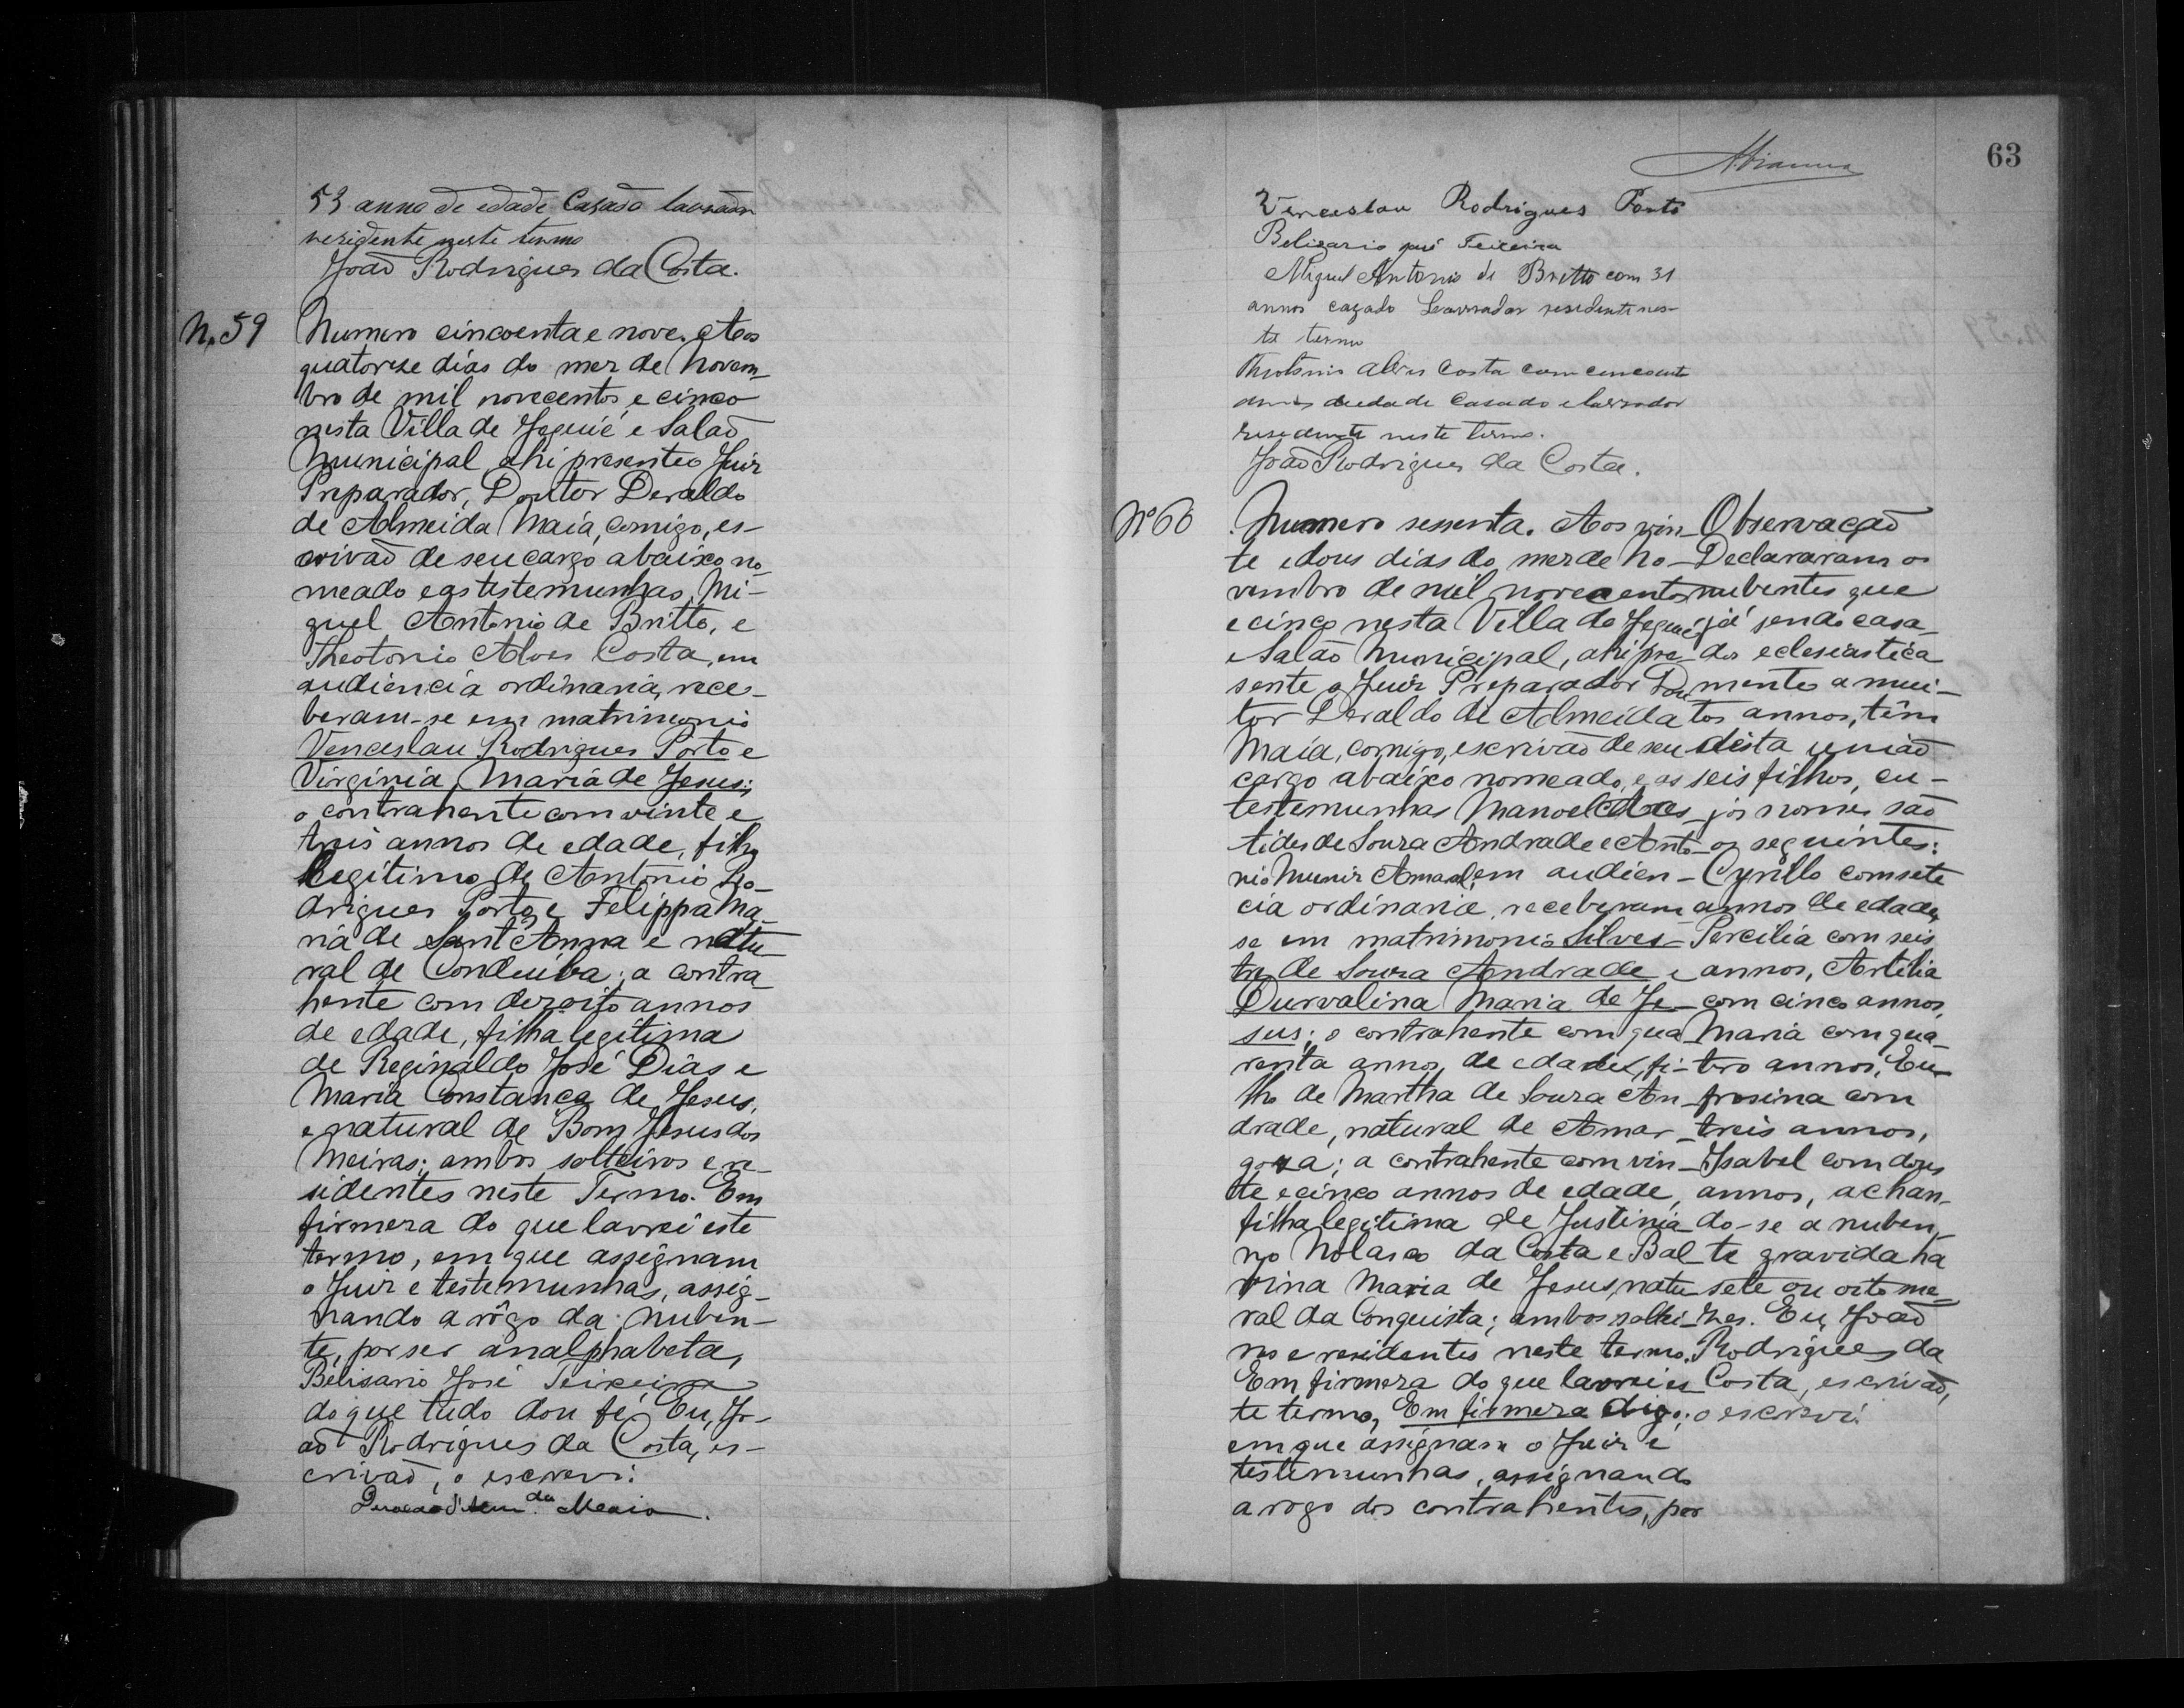 53 annos de edade Casado lavrador
residente neste termo
João Rodrigues da Costa.
N. 59
Numero cincoenta e nove. Aos
quatorse dias do mez de Novem-
bro de mil novecentos e cinco
nesta Villa de Jequié e Salão
Municipal, ahi presente o Juiz
Preparador, Doutor Deraldo
de Almeida Maia, comigo, es-
crivão de seu cargo abaixo no-
meado e as testemunhas, Mi-
guel Antonio de Britto, e
Theotonio Alves Costa, em
audiencia ordinaria, rece-
beram-se em matrimonio
Venceslau Rodrigues Porto e
Virginia Maria de Jesus;
o contrahente com vinte e
treis annos de edade, filho
legitimo de Antonio Ro-
drigues Porto e Felippa Ma-
ria de Sant'Anna e natu-
ral de Condeúba; a contra-
hente com dezoito annos
de edade, filha legitima
de Reginaldo José Dias e
Maria Constança de Jesus,
e natural de Bom Jesus dos
Meiras; ambos solteiros e re-
sidentes neste Termo. Em
firmeza do que lavrei este
termo, em que assignam
o Juiz e testemunhas, assig-
nando a rôgo da nuben-
te, por ser analphabeta,
Belisario José Teixeira
do que tudo dou fé. Eu, Jo-
ão Rodrigues da Costa, es-
crivão, o escrevi.
Deraldo d'Alm.da Maia.
63
Vianna
Venceslau Rodrigues Porto
Belizario José Teixeira
Miguel Antonio de Britto com 31
annos cazado Lavrador residente nes-
te termo
Theotonio Alves Costa com cincoent
annos de edade Casado e lavrador
residente neste termo.
João Rodrigues da Costa.
Nº 60
Numero sessenta. Aos vin-
te e dous dias do mez de No-
vembro de mil novecentos
e cinco nesta Villa do Jequié
e Salão Municipal, ahi pre-
sente o Juiz Preparador Dou-
tor Deraldo de Almeida
Maia, comigo, escrivão de seu
cargo abaixo nomeado, e as
testemunhas Manoel Alces-
tides de Souza Andrade e Anto-
nio Muniz Amaral, em audien-
cia ordinaria, receberam
se em matrimonio Silves-
tre de Souza Andrade e
Durvalina Maria de Je-
sus; o contrahente com qua-
renta annos de edade, fi-
lho de Martha de Souza An-
drade, natural de Amar-
goza; a contrahente com vin-
te e cinco annos de edade,
filha legitima de Justinia-
no Nolasco da Costa e Bal-
vina Maria de Jesus, natu-
ral da Conquista; ambos soltei-
ros e residentes neste termo.
Em firmeza do que lavrei es-
te termo, Em firmeza digo;
em que assignam o Juiz e
testemunhas, assignando
a rogo dos contrahentes, por
Observação
Declararam os
nubentes que
já sendo casa-
dos eclesiastica
mente a mui-
tos annos, têm
desta união
seis filhos, cu-
jos nomes são
os seguintes:
Cyrillo com sete
annos de edade,
Percilia com seis
annos, Artilia
com cinco annos,
Maria com qua-
tro annos, Eu-
frosina com
treis annos,
Isabel com dous
annos, achan-
do-se a nuben-
te gravida ha
sete ou oito me-
zes. Eu, João
Rodrigues da
Costa, escrivão,
o escrevi.